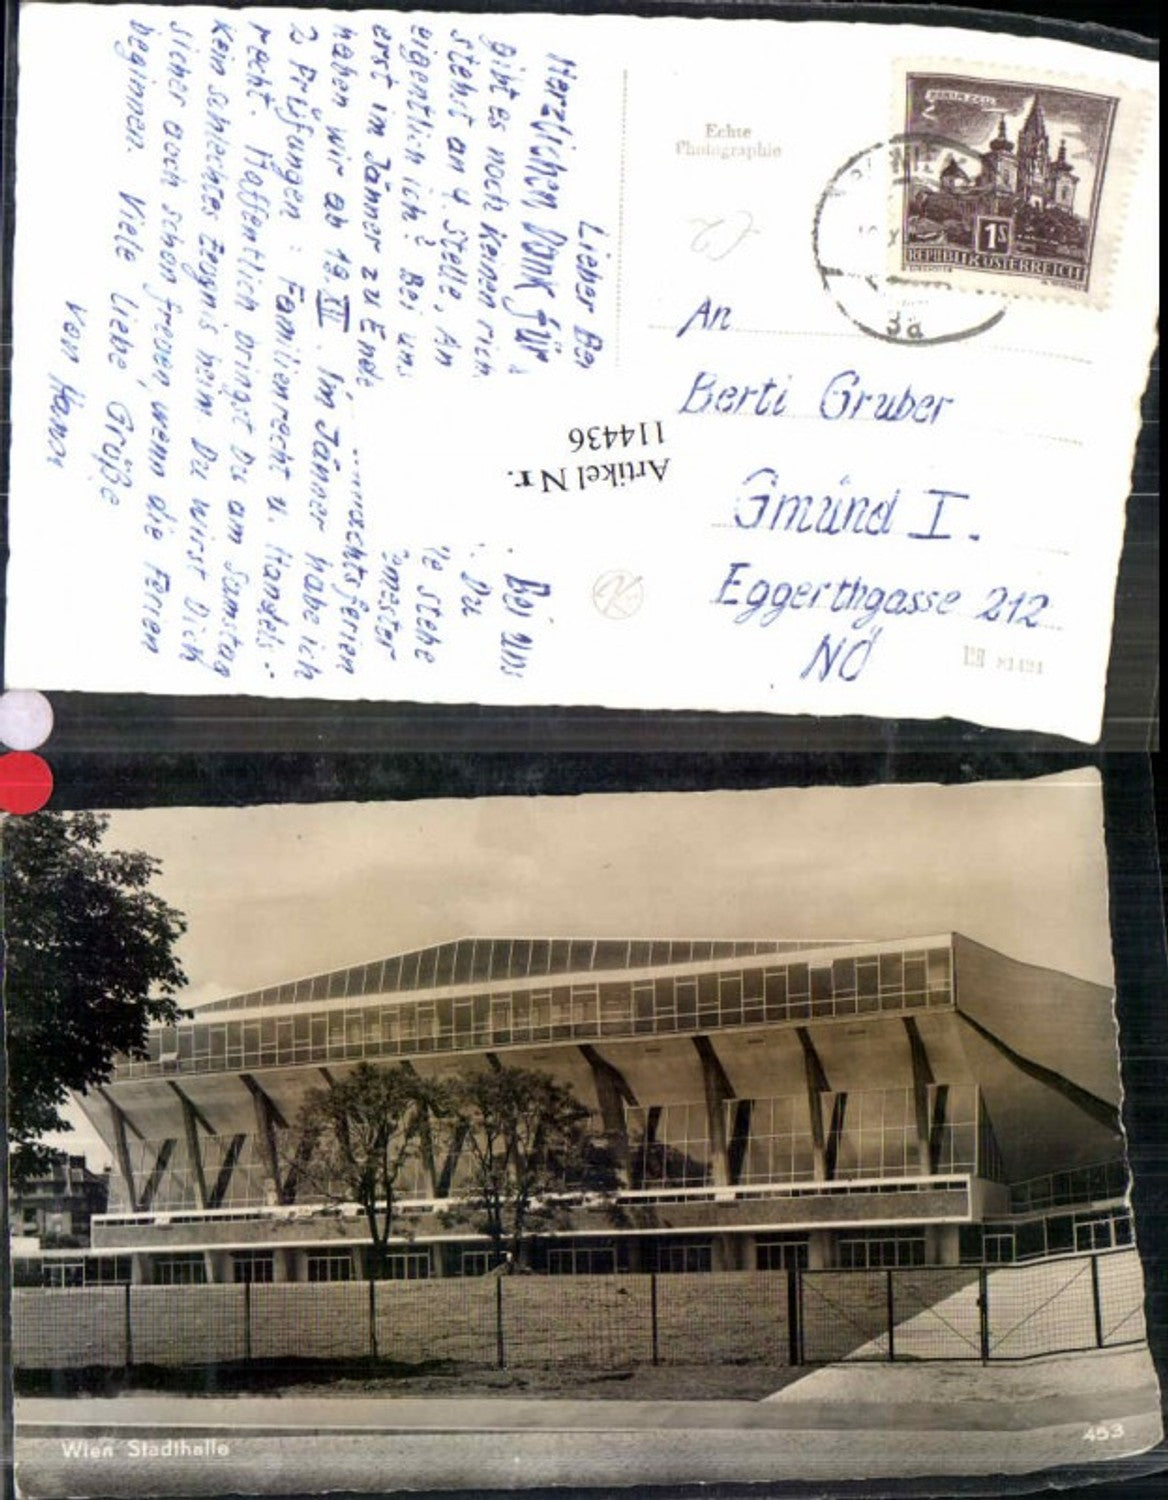 Lieber Be
Herzlichen Dank für
Bei uns
gibt es noch keinen rich
Du
stehst an 4. Stelle, An
te stehe
eigentlich ich? Bei un
erst im Jänner zu Ende,
haben wir ab 19. XII. Im Jänner habe ich
2 Prüfungen: Familienrecht u. Handels-
recht. Hoffentlich bringst Du am Samstag
kein schlechtes Zeugnis heim. Du wirst Dich
sicher auch schon freuen, wenn die Ferien
beginnen. Viele liebe Grüße
von
Echte
Photographie
MARIAZELL
1S
REPUBLIK ÖSTERREICH
WIEN
3a
An
Berti Gruber
Gmünd I.
Eggerthgasse 212
NÖ
Artikel Nr.
114436
Wien Stadthalle
453